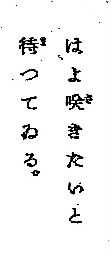 はよ咲きたいと
待つてゐる。